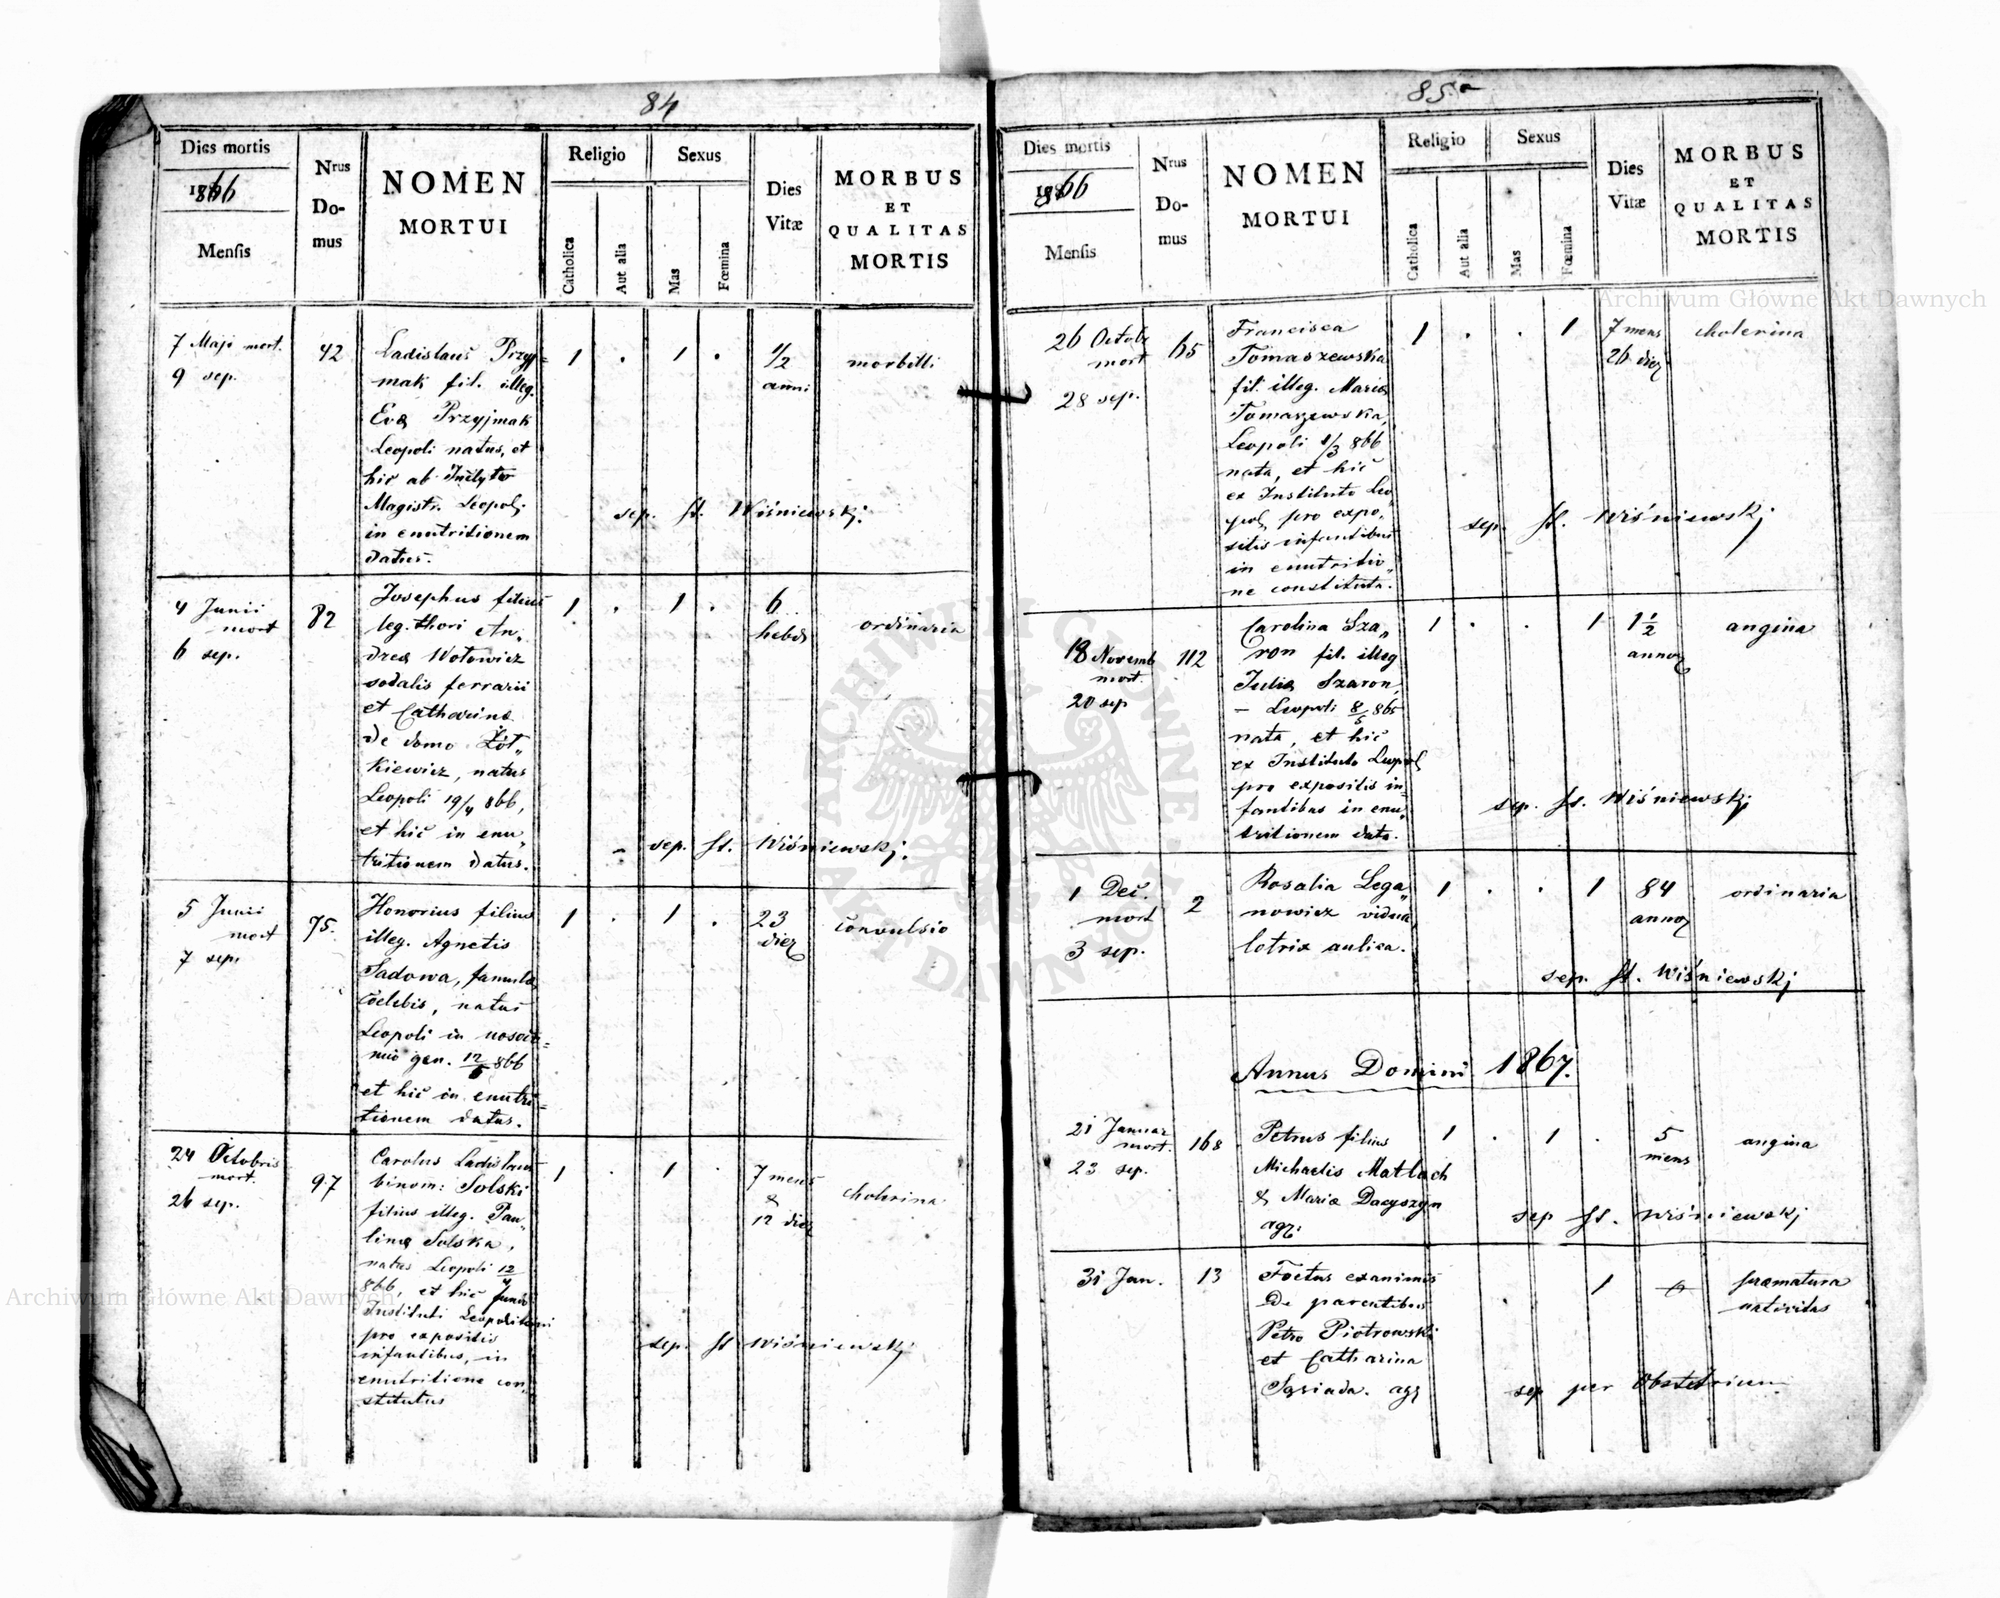 84
Dies mortis
1866
Mensis
Nrus
Do-
mus
NOMEN
MORTUI
Religio
Catholica
Aut alia
Sexus
Mas
Fœmina
Dies
Vitæ
MORBUS
ET
QUALITAS
MORTIS
7 Maji mort.
9 sep.
42
Ladislaus Przyj=
mak fil. illeg.
Evæ Przyjmak
Leopoli natus, et
hic ab Inclyto
Magistr. Leopol.
in enutritionem
datus.
1 . 1 .
1/2
anni
morbilli
sep. St. Wiśniewski.
4 Junii
mort
6 sep.
82
Josephus filius
leg. thori An„
dreæ Wołowicz
sodalis ferrarii
et Catharinæ
de domo Żół„
kiewicz, natus
Leopoli 19/4 866,
et hic in enu„
tritionem datus.
1 . 1 .
6
hebd
ordinaria
sep. St. Wiśniewski.
5 Junii
mort
7 sep.
75.
Honorius filius
illeg. Agnetis
Sadowa, famula
cœlebis, natus
Leopoli in nosoco=
mio gen. 12/5 866
et hic in enutri=
tionem datus.
1 . 1 .
23
dier
convulsio
24 Octobris
mort.
26 sep.
97
Carolus Ladislaus
binom: Solski
filius illeg. Pau„
linæ Solska,
natus Leopoli 12/4
866, et hic
Instituti Leopolitani
pro expositis
infantibus, in
enutritione con„
stitutus
1 . 1 .
7 mens
&
12 dier
cholerina
sep. St. Wiśniewski
85a
Dies mortis
1866
Mensis
Nrus
Do-
mus
NOMEN
MORTUI
Religio
Catholica
Aut alia
Sexus
Mas
Fœmina
Dies
Vitæ
MORBUS
ET
QUALITAS
MORTIS
26 Octob
mort
28 sep.
65
Francisca
Tomaszewska
fil. illeg. Mariæ
Tomaszewska,
Leopoli 1/3 866
nata, et hic
ex Instituto Leo
pol. pro expo„
sitis infantibus
in enutritio„
ne constituta.
1 . . 1
7 mens
26 dier
cholerina
sep. St. Wiśniewski
18 Novemb
mort.
20 sep
112
Carolina Sza„
ron fil. illeg
Juliæ Szaron,
– Leopoli 8/5 865
nata, et hic
ex Instituto Leopol
pro expositis in=
fantibus in enu„
tritionem data.
1 . . 1
1 1/2
annor
angina
sep. St. Wiśniewski
1 Dec.
mort
3 sep.
2
Rosalia Lega„
nowicz vidua,
lotrix aulica.
1 . . 1
84
annor
ordinaria
sep. St. Wiśniewski
Annus Domini 1867.
21 Januar
mort.
23 sep.
168
Petrus filius
Michaelis Matłach
& Mariæ Daczyszyn
agr:
1 . 1 .
5
mens
angina
sep St. Wiśniewski
31 Jan.
13
Foetus exanimis
de parentibus
Petro Piotrowski
et Catharina
Sąsiada. agr
1
0
præmatura
nativitas
sep per Obstetricem
Archiwum Główne Akt Dawnych
Archiwum Główne Akt Dawnych
ARCHIWUM GŁÓWNE AKT DAWNYCH